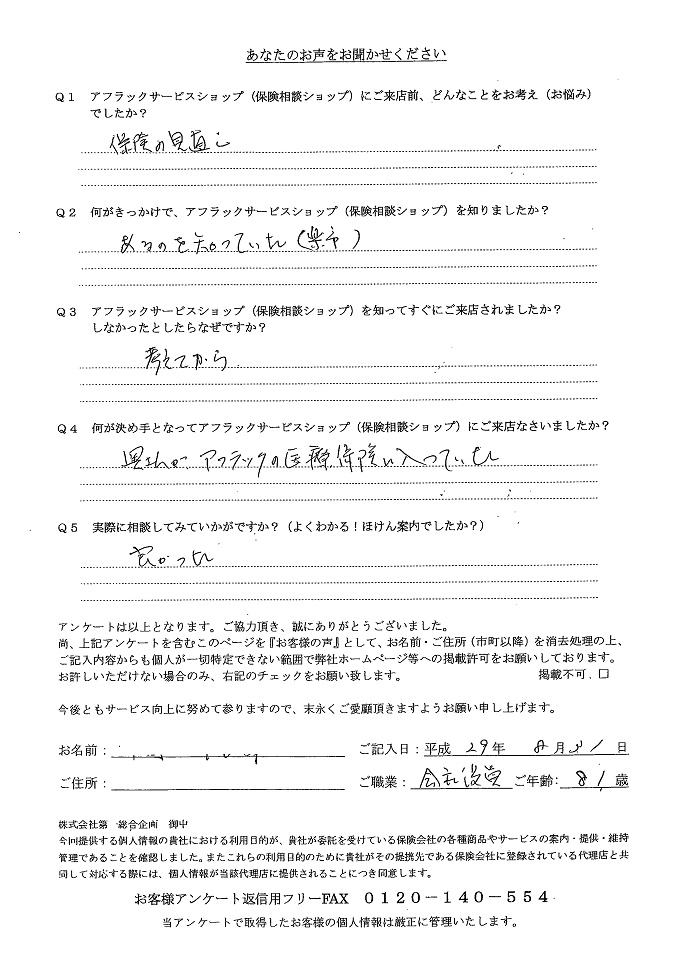 あなたのお声をお聞かせください
Q1 アフラックサービスショップ（保険相談ショップ）にご来店前、どんなことをお考え（お悩み）
でしたか？
保険の見直し
Q2 何がきっかけで、アフラックサービスショップ（保険相談ショップ）を知りましたか？
あるのを知っていた
Q3 アフラックサービスショップ（保険相談ショップ）を知ってすぐにご来店されましたか？
しなかったとしたらなぜですか？
考えてから
Q4 何が決め手となってアフラックサービスショップ（保険相談ショップ）にご来店なさいましたか？
アフラックの医療保険に入っていた
Q5 実際に相談してみていかがですか？（よくわかる！ほけん案内でしたか？）
良かった
アンケートは以上となります。ご協力頂き、誠にありがとうございました。
尚、上記アンケートを含むこのページを『お客様の声』として、お名前・ご住所（市町以降）を消去処理の上、
ご記入内容からも個人が一切特定できない範囲で弊社ホームページ等への掲載許可をお願いしております。
お許しいただけない場合のみ、右記のチェックをお願い致します。 掲載不可．□
今後ともサービス向上に努めて参りますので、末永くご愛顧頂きますようお願い申し上げます。
お名前： ご記入日：平成 29年 8月31日
ご住所： ご職業：会社役員 ご年齢：81歳
株式会社第一総合企画 御中
今回提供する個人情報の貴社における利用目的が、貴社が委託を受けている保険会社の各種商品やサービスの案内・提供・維持
管理であることを確認しました。またこれらの利用目的のために貴社がその提携先である保険会社に登録されている代理店と共
同して対応する際には、個人情報が当該代理店に提供されることにつき同意します。
お客様アンケート返信用フリーFAX 0120－140－554
当アンケートで取得したお客様の個人情報は厳正に管理いたします。